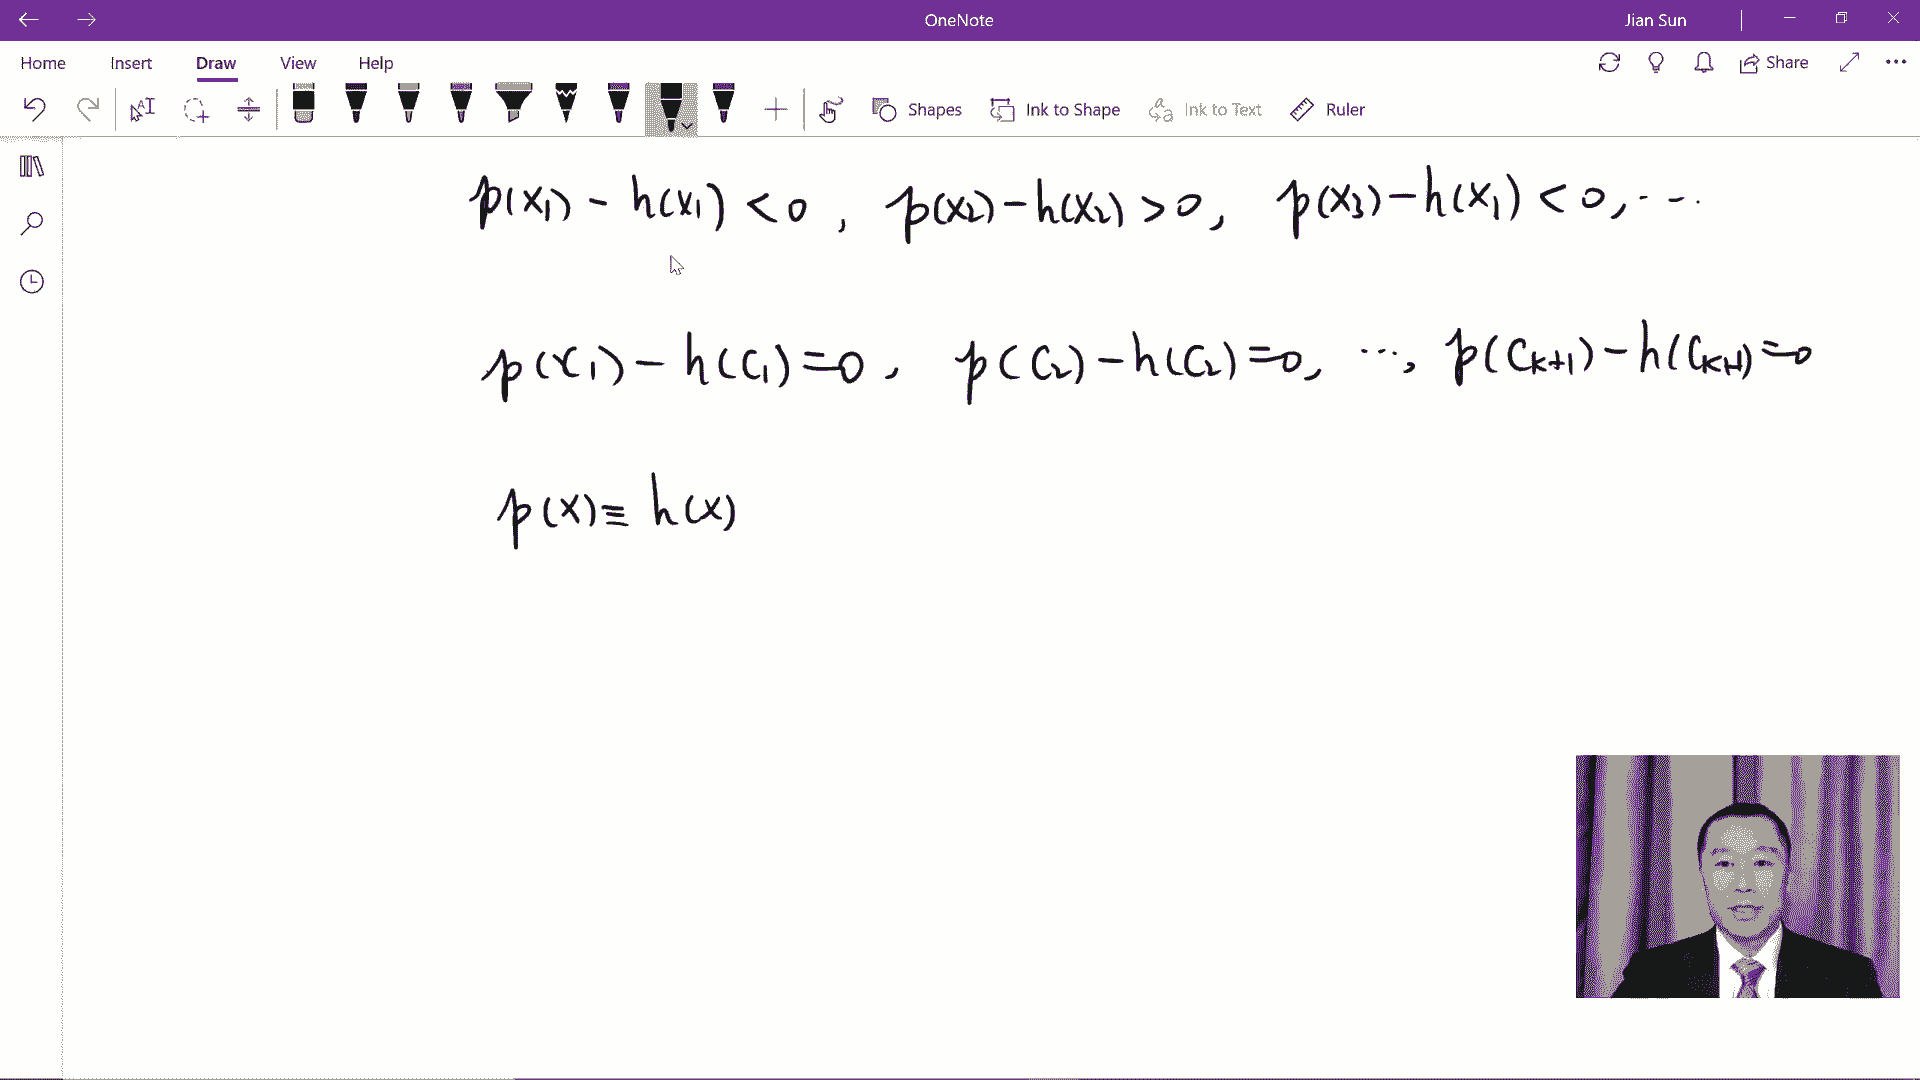 OneNote
Jian Sun
Home Insert Draw View Help
Share
Shapes Ink to Shape Ink to Text Ruler
p(x₁) - h(x₁) < 0 , p(x₂) - h(x₂) > 0, p(x₃) - h(x₁) < 0, ...
p(c₁) - h(c₁) = 0 , p(c₂) - h(c₂) = 0, ..., p(cₖ₊₁) - h(cₖ₊₁) = 0
p(x) ≡ h(x)